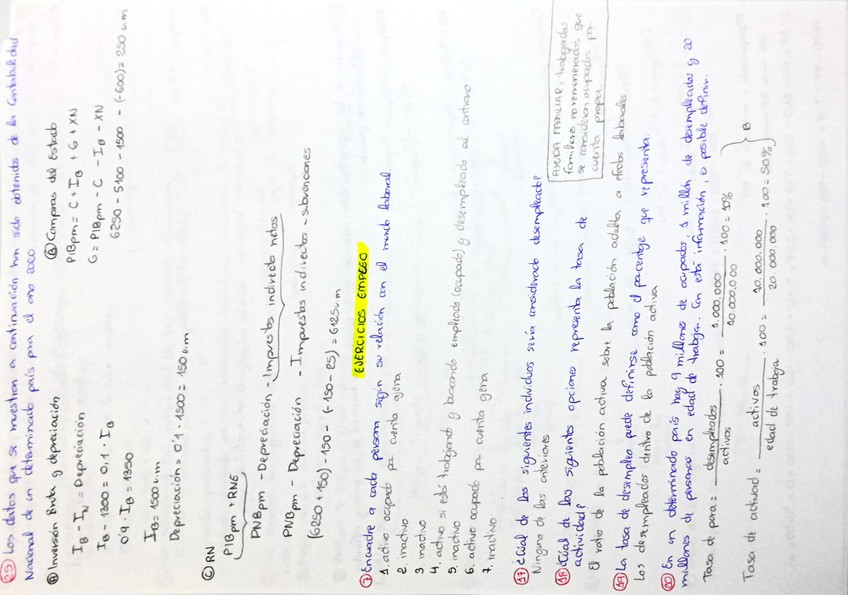 25 Los datos que se muestran a continuación han sido obtenidos de la Contabilidad
Nacional de un determinado país para el año 2020.
Ⓑ Inversión Bruta y depreciación
I_B - I_N = Depreciación
I_B - 1300 = 0,1 · I_B
0'9 · I_B = 1350
I_B = 1500 u.m
Depreciación = 0'1 · 1500 = 150 u.m
Ⓐ Compras del Estado
PIBpm = C + I_B + G + XN
G = PIBpm - C - I_B - XN
6250 - 5100 - 1500 - (-600) = 250 u.m
Ⓒ RN
PIBpm + RNE
PNBpm - Depreciación - Impuestos indirecto netos
PNBpm - Depreciación - Impuestos indirectos - subvenciones
(6250 + 150) - 150 - (-150 - 25) = 6125 u.m
EJERCICIOS EMPLEO
① Encuadre a cada persona según su relación con el mundo laboral
1. activo ocupado por cuenta ajena
2. inactivo
3 inactivo
4. activo si está trabajando y buscando empleado (ocupado) y desempleado al contrario
5. inactivo
6. activo ocupado por cuenta ajena
7. inactivo
AYUDA FAMILIAR: trabajadas
familiares no remunerados que
se consideran ocupados por
cuenta propia.
17 ¿Cuál de los siguientes individuos sería considerado desempleado?
Ninguno de los anteriores
18 ¿Cuál de las siguientes opciones representa la tasa de
actividad?
El ratio de la población activa sobre la población adulta a efectos laborales
19 La tasa de desempleo puede definirse como el porcentaje que representa:
Los desempleados dentro de la población activa
20 En un determinado país hay 9 millones de ocupados, 1 millón de desempleados y 20
millones de personas en edad de trabajar. Con esta información, es posible definir:
Tasa de paro = desempleados / activos · 100 = 1.000.000 / 10.000.000 · 100 = 10%
Tasa de actividad = activos / edad de trabajar · 100 = 10.000.000 / 20.000.000 · 100 = 50%
B